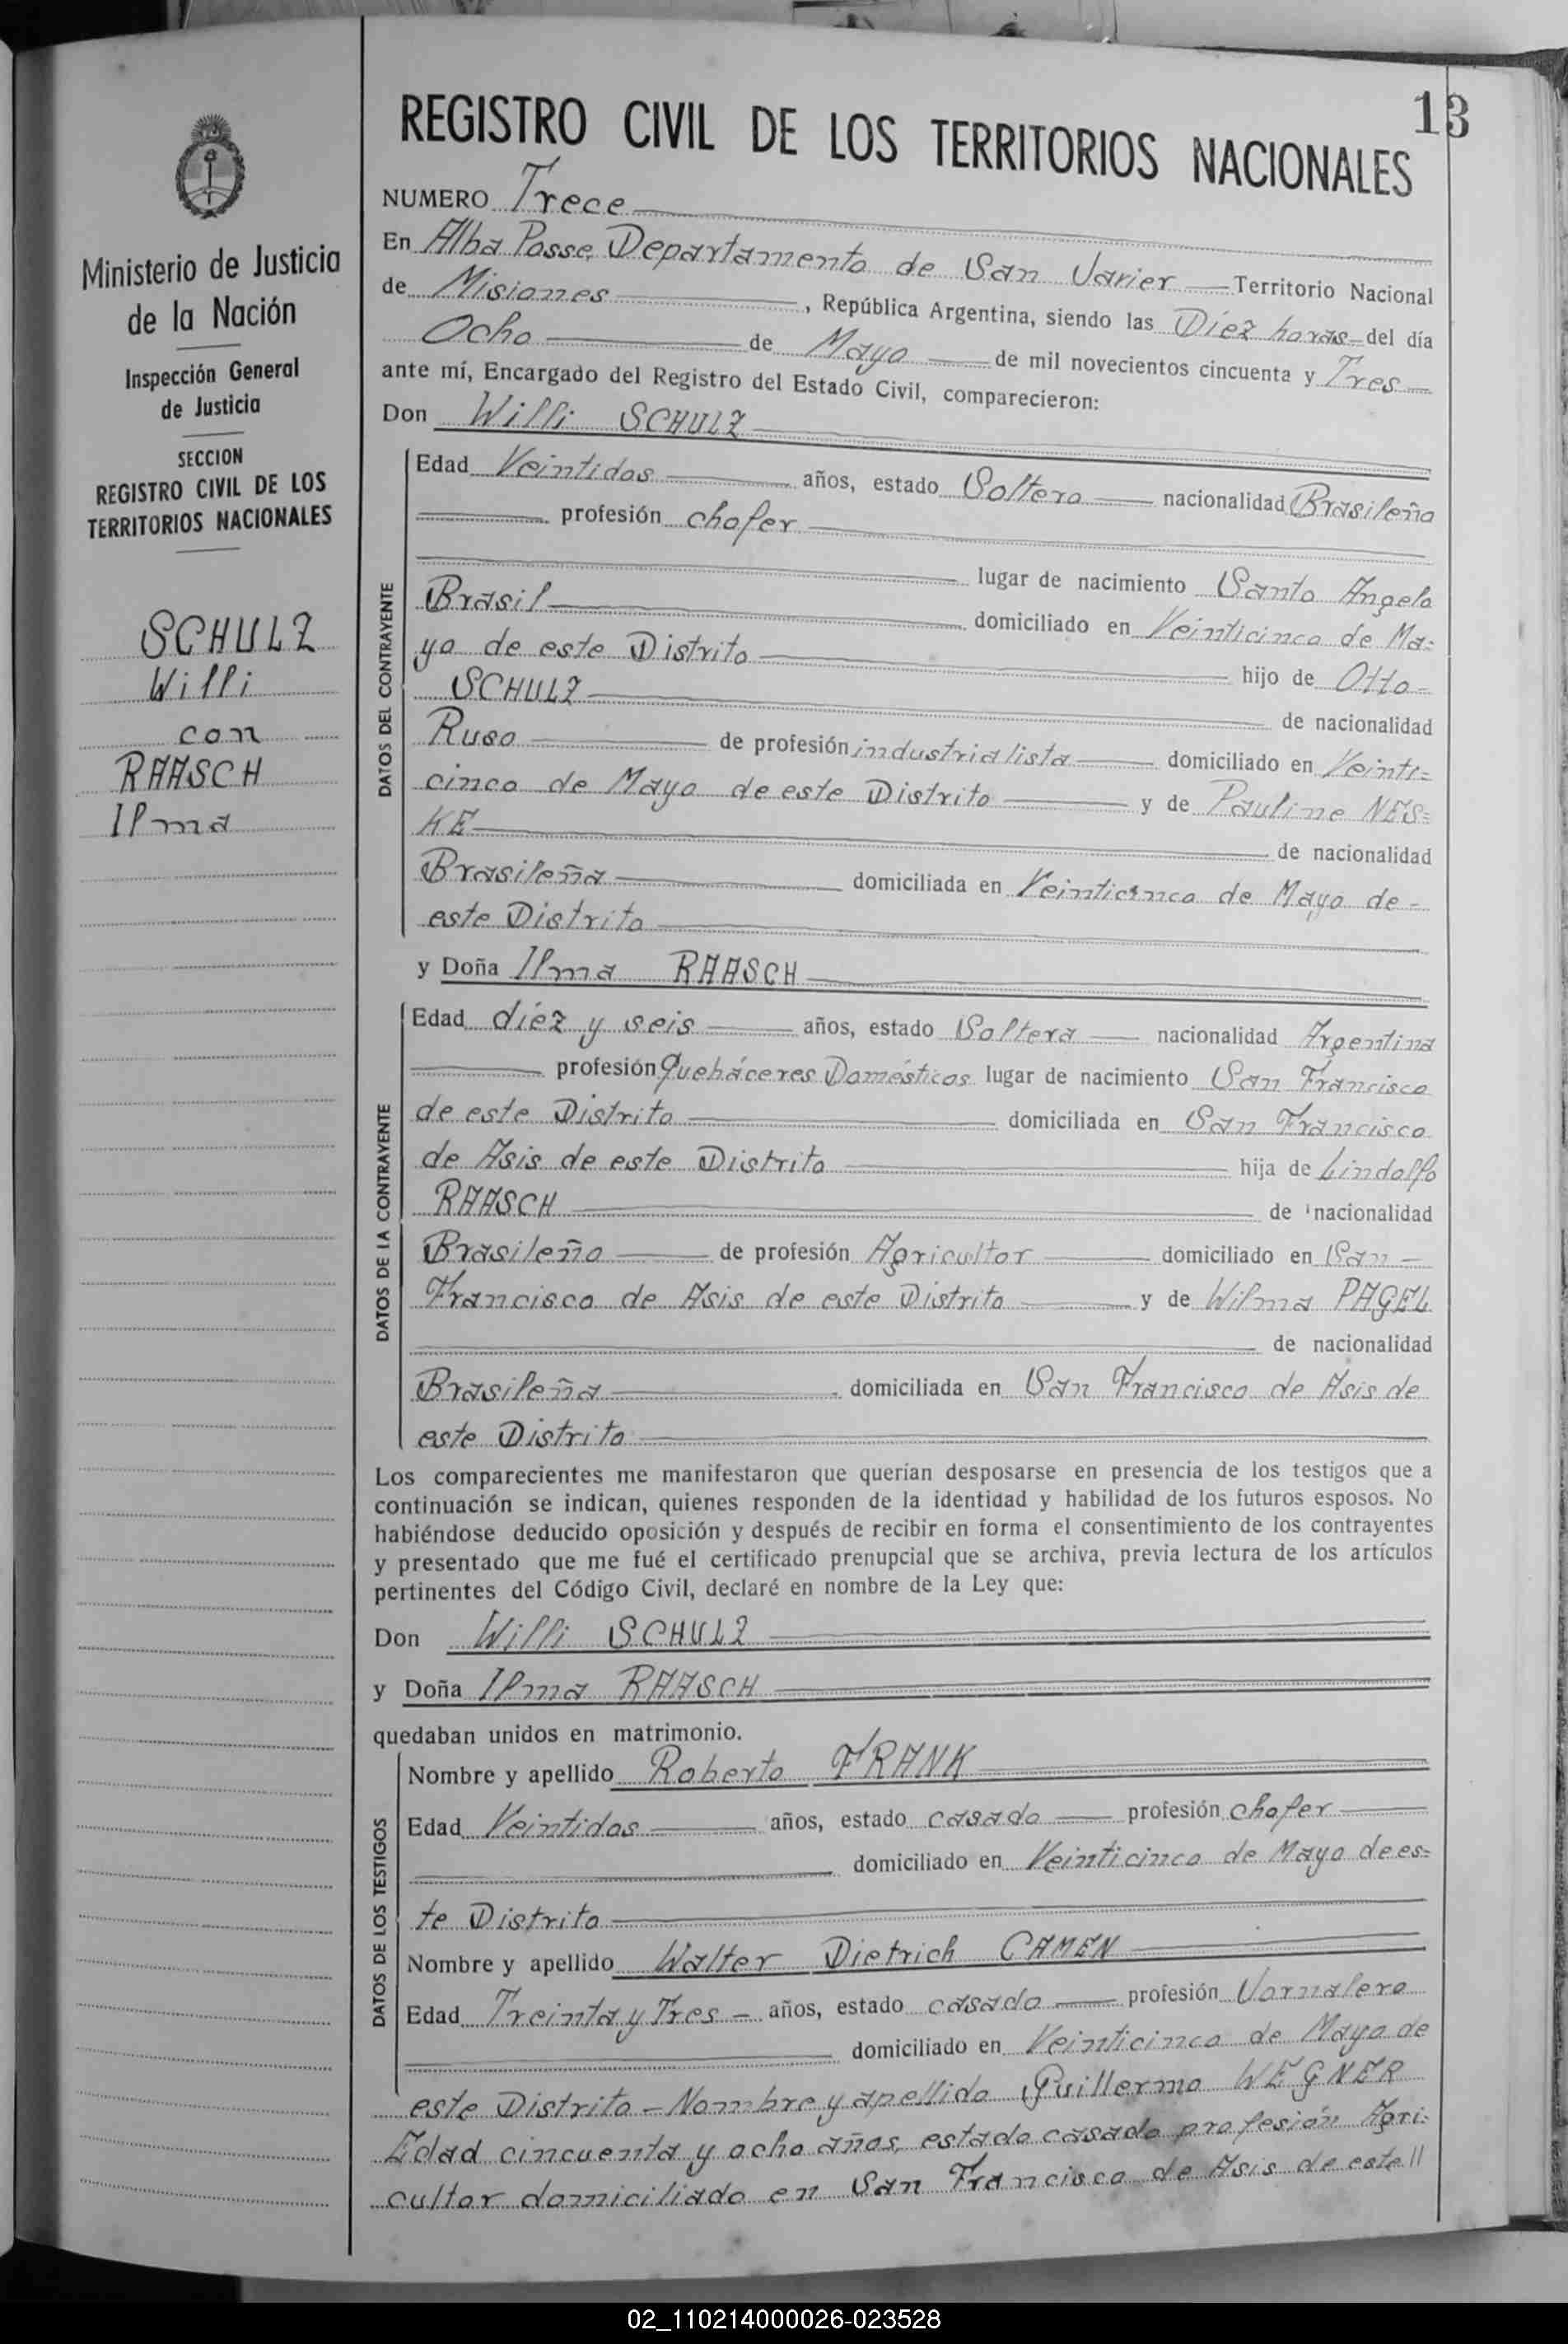 13
REGISTRO CIVIL DE LOS TERRITORIOS NACIONALES
Ministerio de Justicia
de la Nación
Inspección General
de Justicia
SECCION
REGISTRO CIVIL DE LOS
TERRITORIOS NACIONALES
SCHULZ
Willi
con
RAASCH
Ilma
NUMERO Trece
En Alba Posse, Departamento de San Javier Territorio Nacional
de Misiones, República Argentina, siendo las Diez horas del día
Ocho de Mayo de mil novecientos cincuenta y Tres
ante mí, Encargado del Registro del Estado Civil, comparecieron:
Don Willi SCHULZ
DATOS DEL CONTRAYENTE
Edad Veintidos años, estado Soltero nacionalidad Brasileña
profesión chofer
lugar de nacimiento Santo Angelo
Brasil domiciliado en Veinticinco de Ma=
yo de este Distrito hijo de Otto
SCHULZ de nacionalidad
Ruso de profesión industrialista domiciliado en Veinti=
cinco de Mayo de este Distrito y de Pauline NES=
KE de nacionalidad
Brasileña domiciliada en Veinticinco de Mayo de
este Distrito
y Doña Ilma RAASCH
DATOS DE LA CONTRAYENTE
Edad diéz y seis años, estado Soltera nacionalidad Argentina
profesión Quehaceres Domésticos lugar de nacimiento San Francisco
de este Distrito domiciliada en San Francisco
de Asis de este Distrito hija de Lindolfo
RAASCH de nacionalidad
Brasileño de profesión Agricultor domiciliado en San
Francisco de Asis de este Distrito y de Wilma PAGEL
de nacionalidad
Brasileña domiciliada en San Francisco de Asis de
este Distrito
Los comparecientes me manifestaron que querían desposarse en presencia de los testigos que a
continuación se indican, quienes responden de la identidad y habilidad de los futuros esposos. No
habiéndose deducido oposición y después de recibir en forma el consentimiento de los contrayentes
y presentado que me fué el certificado prenupcial que se archiva, previa lectura de los artículos
pertinentes del Código Civil, declaré en nombre de la Ley que:
Don Willi SCHULZ
y Doña Ilma RAASCH
quedaban unidos en matrimonio.
DATOS DE LOS TESTIGOS
Nombre y apellido Roberto FRANK
Edad Veintidos años, estado casado profesión chofer
domiciliado en Veinticinco de Mayo de es=
te Distrito
Nombre y apellido Walter Dietrich CAMEN
Edad Treinta y Tres años, estado casado profesión Jornalero
domiciliado en Veinticinco de Mayo de
este Distrito - Nombre y apellido Guillermo WEGNER
Edad cincuenta y ocho años, estado casado profesión Agri=
cultor domiciliado en San Francisco de Asis de este //
02_110214000026-023528